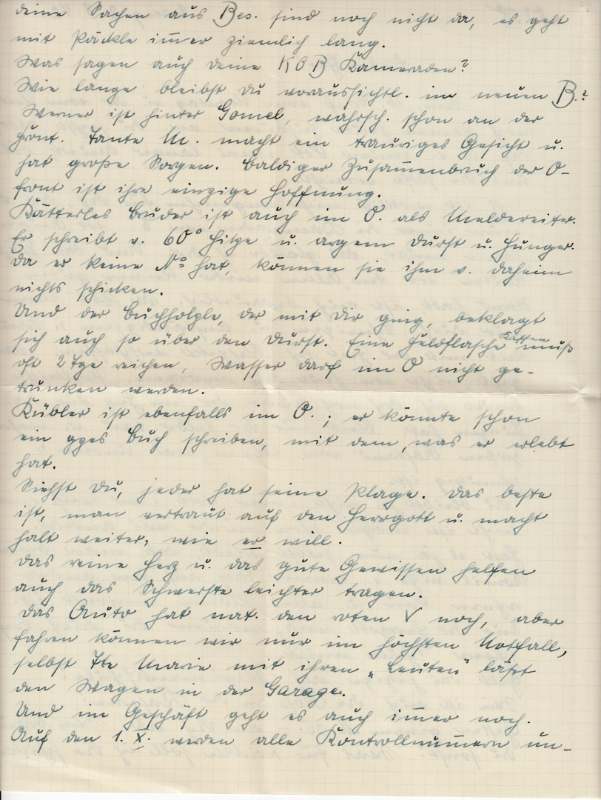 deine Sachen aus Bes. sind noch nicht da, es geht
mit Päckle im̄er ziemlich lang.
Was sagen auch deine KOB Kameraden?
Wie lange bleibst du voraussichtl. im neuen B.?
Werner ist hinter Gomel, wahrsch. schon an der
Front. Tante M. macht ein trauriges Gesicht u.
hat große Sorgen. Baldiger Zusam̄enbruch der O-
front ist ihre einzige Hoffnung.
Kätterles Bruder ist auch im O. als Meldereiter.
Er schreibt v. 60° Hitze u. argem Durst u. Hunger.
Da er keine No hat, können sie ihm v. daheim
nichts schicken.
Und der Buchholzle, der mit dir ging, beklagt
sich auch so über den Durst. Eine Feldflasche muß
oft 2 Tge reichen, Wasser darf im O nicht ge-
trunken werden.
Kübler ist ebenfalls im O.; er könnte schon
ein gzes Buch schreiben, mit dem, was er erlebt
hat.
Siehst du, jeder hat seine Plage. Das beste
ist, man vertraut auf den Herrgott u. macht
halt weiter, wie er will.
Das reine Herz u. das gute Gewissen helfen
auch das Schwerste leichter tragen.
Das Auto hat nat. den roten V noch, aber
fahren können wir nur im höchsten Notfall,
selbst Tte Marie mit ihren "Leuten" läßt
den Wagen in der Garage.
Und im Geschäft geht es auch im̄er noch.
Auf den 1. X. werden alle Kontrollnum̄ern un-